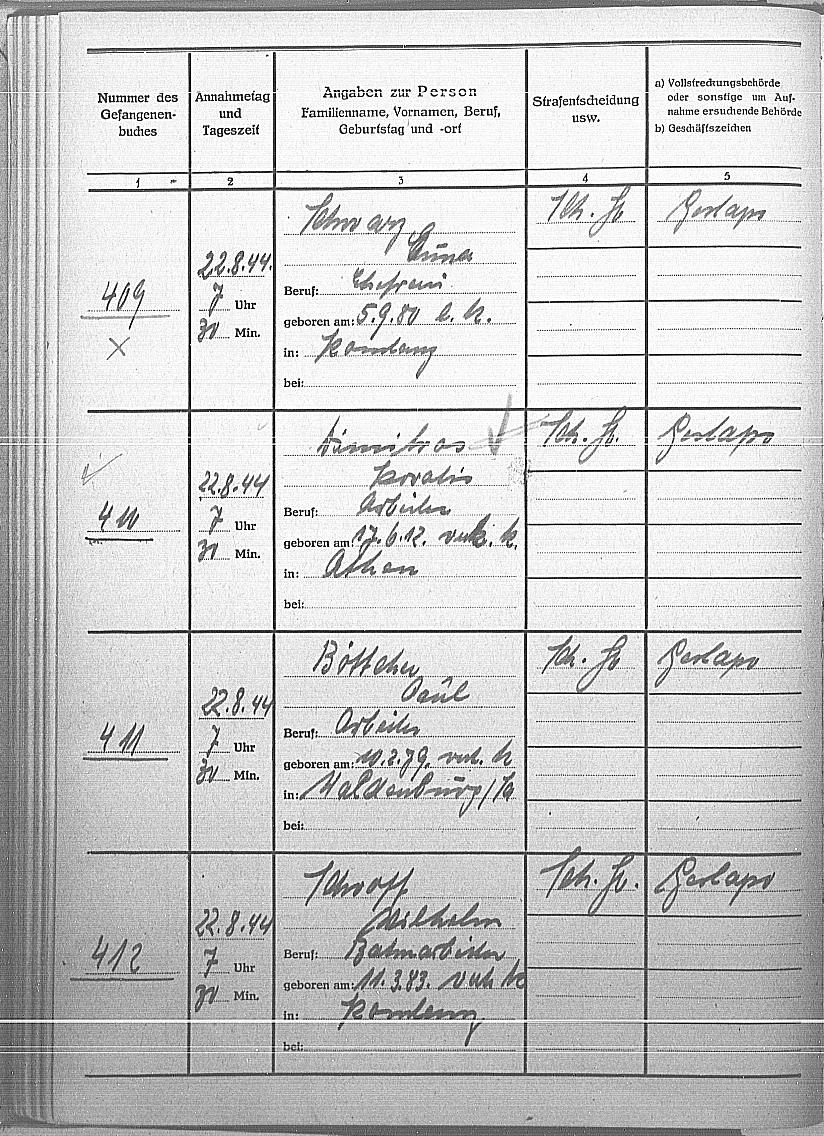 Nummer des
Gefangenen-
buches
Annahmetag
und
Tageszeit
Angaben zur Person
Familienname, Vornamen, Beruf,
Geburtstag und -ort
Strafentscheidung
usw.
a) Vollstreckungsbehörde
oder sonstige um Auf-
nahme ersuchende Behörde
b) Geschäftszeichen
1 2 3 4 5
409
22.8.44.
7 Uhr
30 Min.
Schwarz
Anna
Beruf: Ehefrau
geboren am: 5.9.80
in: Konstanz
bei:
Sch. H.
Gestapo
410
22.8.44
7 Uhr
30 Min.
Dimitros
Beruf: Arbeiter
geboren am: 17.6.12.
in: Athen
bei:
Sch. H.
Gestapo
411
22.8.44
7 Uhr
30 Min.
Böttcher
Paul
Beruf: Arbeiter
geboren am: 10.2.79. verh. k
in: Waldenburg/Sa
bei:
Sch. H
Gestapo
412
22.8.44
7 Uhr
30 Min.
Schroff
Wilhelm
Beruf: Bahnarbeiter
geboren am: 11.3.83. verh k
in: Konstanz
bei:
Sch. H.
Gestapo